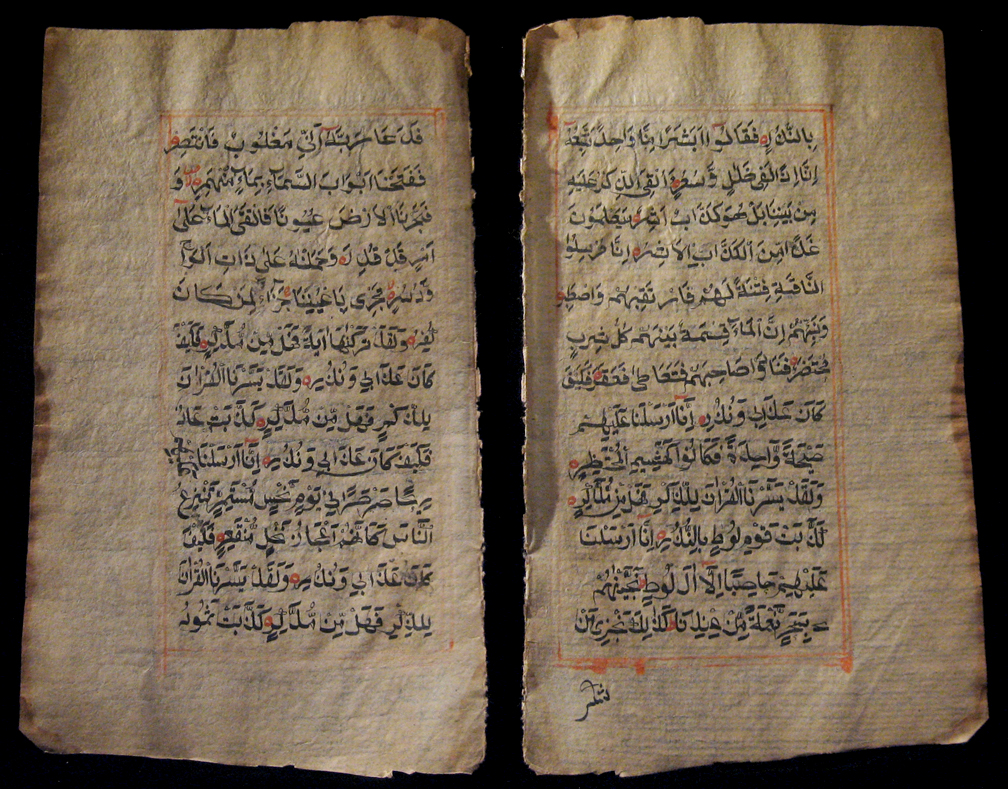 فَدَعَا رَبَّهُ أَنِّي مَغْلُوبٌ فَانْتَصِرْ
فَفَتَحْنَا أَبْوَابَ السَّمَاءِ بِمَاءٍ مُنْهَمِرٍ وَ
فَجَّرْنَا الْأَرْضَ عُيُونًا فَالْتَقَى الْمَاءُ عَلَى
أَمْرٍ قَدْ قُدِرَ وَحَمَلْنَاهُ عَلَى ذَاتِ أَلْوَاحٍ
وَدُسُرٍ تَجْرِي بِأَعْيُنِنَا جَزَاءً لِمَنْ كَانَ
كُفِرَ وَلَقَدْ تَرَكْنٰهَا آيَةً فَهَلْ مِنْ مُدَّكِرٍ فَكَيْفَ
كَانَ عَذَابِي وَنُذُرِ وَلَقَدْ يَسَّرْنَا الْقُرْآنَ
لِلذِّكْرِ فَهَلْ مِنْ مُدَّكِرٍ كَذَّبَتْ عَادٌ
فَكَيْفَ كَانَ عَذَابِي وَنُذُرِ إِنَّا أَرْسَلْنَا عَلَيْهِمْ
رِيحًا صَرْصَرًا فِي يَوْمِ نَحْسٍ مُسْتَمِرٍّ تَنْزِعُ
النَّاسَ كَأَنَّهُمْ أَعْجَازُ نَخْلٍ مُنْقَعِرٍ فَكَيْفَ
كَانَ عَذَابِي وَنُذُرِ وَلَقَدْ يَسَّرْنَا الْقُرْآنَ
لِلذِّكْرِ فَهَلْ مِنْ مُدَّكِرٍ كَذَّبَتْ ثَمُودُ
بِالنُّذُرِ فَقَالُوا أَبَشَرًا مِنَّا وَاحِدًا نَتَّبِعُهُ
إِنَّا إِذًا لَفِي ضَلَالٍ وَسُعُرٍ أَأُلْقِيَ الذِّكْرُ عَلَيْهِ
مِنْ بَيْنِنَا بَلْ هُوَ كَذَّابٌ أَشِرٌ سَيَعْلَمُونَ
غَدًا مَنِ الْكَذَّابُ الْأَشِرُ إِنَّا مُرْسِلُوا
النَّاقَةِ فِتْنَةً لَهُمْ فَارْتَقِبْهُمْ وَاصْطَبِرْ
وَنَبِّئْهُمْ أَنَّ الْمَاءَ قِسْمَةٌ بَيْنَهُمْ كُلُّ شِرْبٍ
مُحْتَضَرٌ فَنَادَوْا صَاحِبَهُمْ فَتَعَاطَى فَعَقَرَ فَكَيْفَ
كَانَ عَذَابِي وَنُذُرِ إِنَّا أَرْسَلْنَا عَلَيْهِمْ
صَيْحَةً وَاحِدَةً فَكَانُوا كَهَشِيمِ الْمُحْتَظِرِ
وَلَقَدْ يَسَّرْنَا الْقُرْآنَ لِلذِّكْرِ فَهَلْ مِنْ مُدَّكِرٍ
كَذَّبَتْ قَوْمُ لُوطٍ بِالنُّذُرِ إِنَّا أَرْسَلْنَا
عَلَيْهِمْ حَاصِبًا إِلَّا آلَ لُوطٍ نَجَّيْنٰهُمْ
بِسَحَرٍ نِعْمَةً مِنْ عِنْدِنَا كَذَلِكَ نَجْزِي مَنْ
شكر